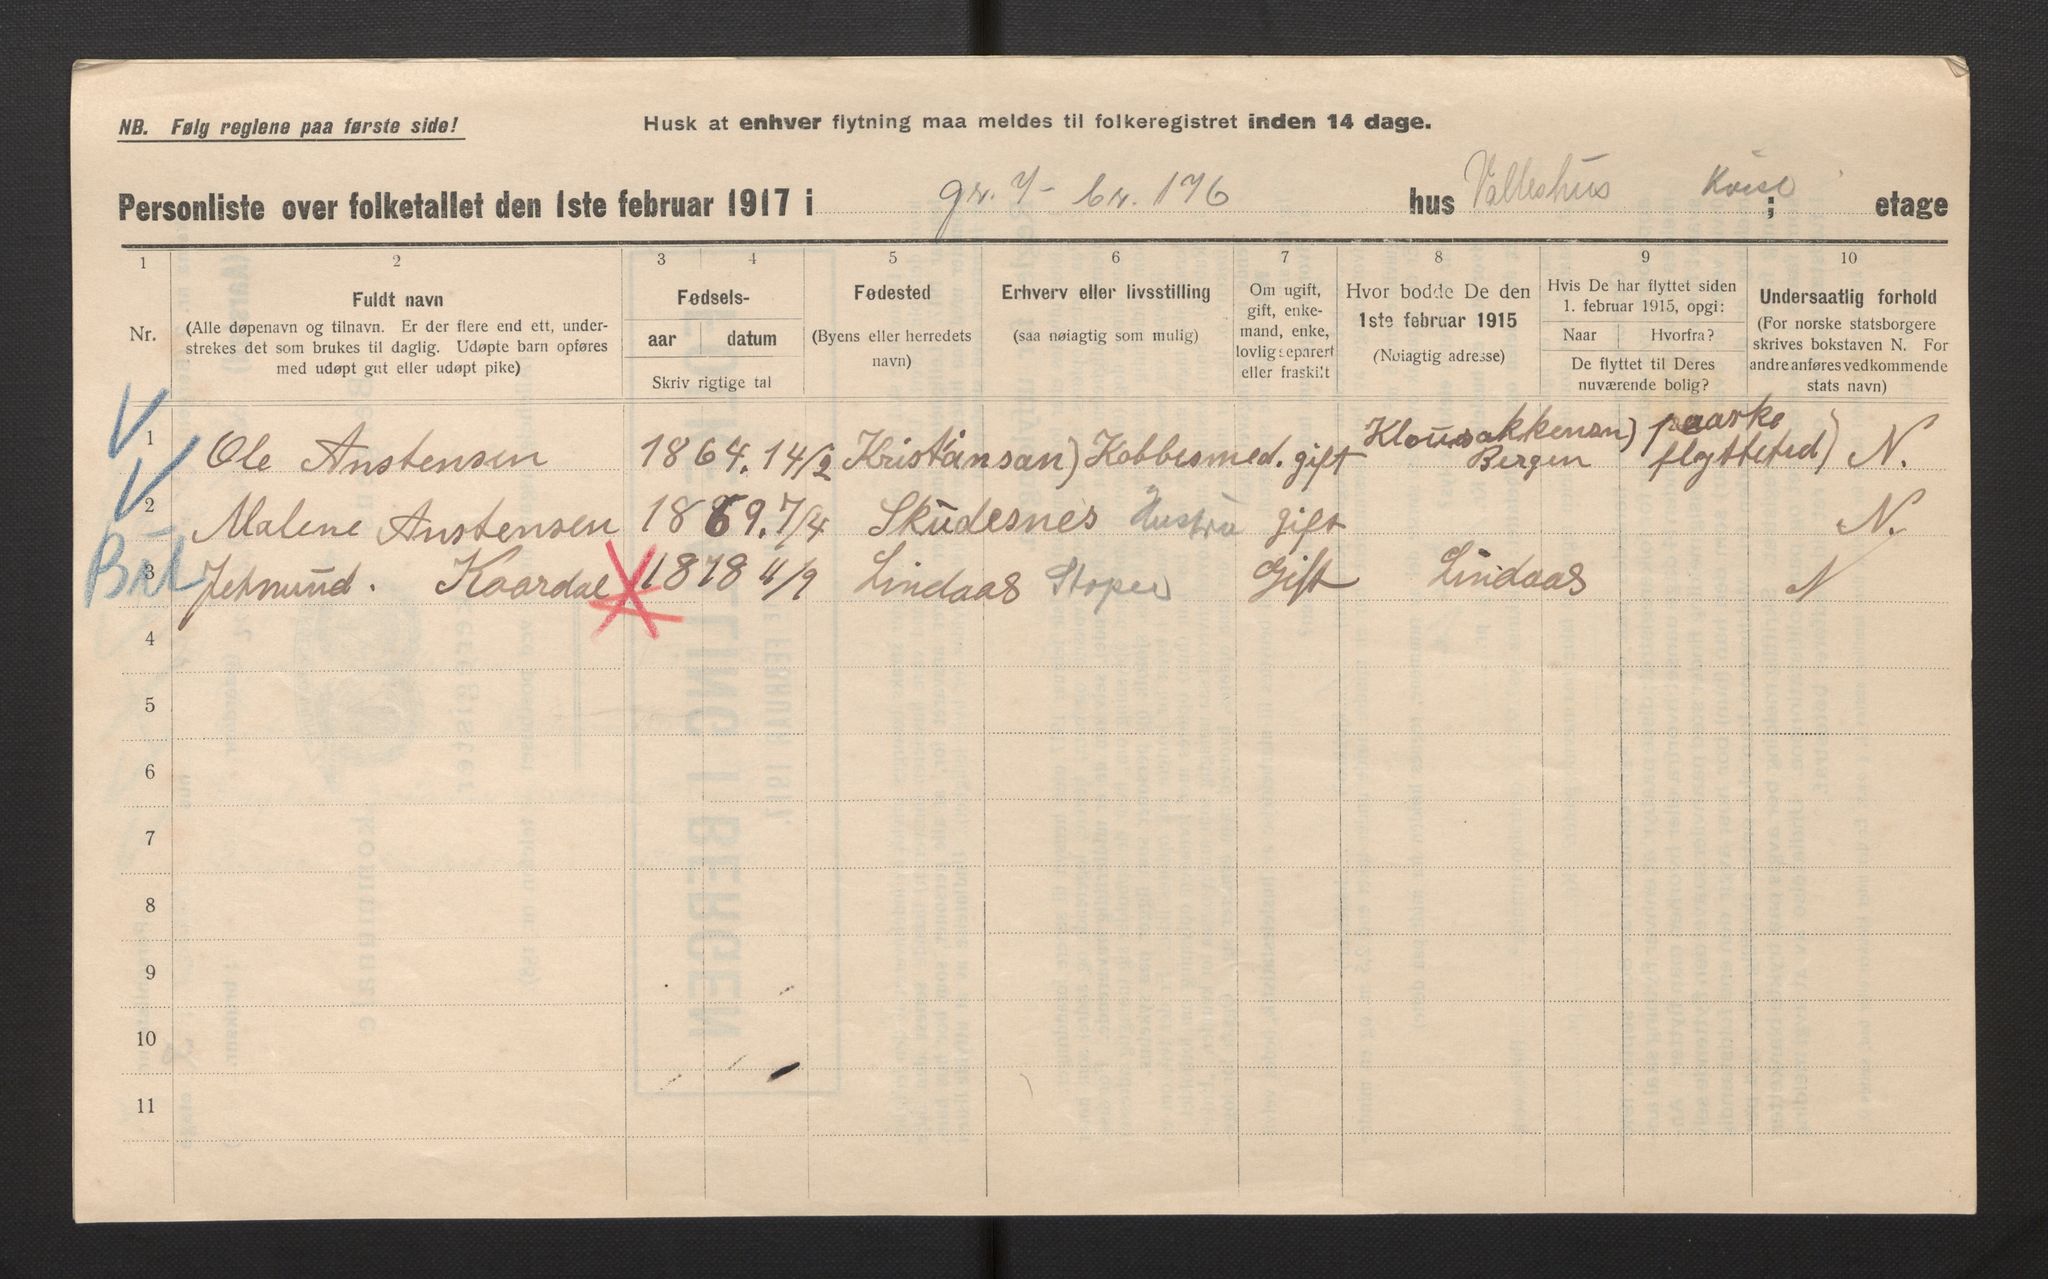 NB. Følg reglene paa første side!
Husk at enhver flytning maa meldes til folkeregistret inden 14 dage.
Personliste over folketallet den 1ste februar 1917 i gr. 7 - br. 176 hus Valleshus ; etage
1 2 3 4 5 6 7 8 9 10
Nr.
Fuldt navn
(Alle døpenavn og tilnavn. Er der flere end ett, under-
strekes det som brukes til daglig. Udøpte barn opføres
med udøpt gut eller udøpt pike)
Fødsels-
aar datum
Skriv rigtige tal
Fødested
(Byens eller herredets
navn)
Erhverv eller livsstilling
(saa nøiagtig som mulig)
Om ugift,
gift, enke-
mand, enke,
lovlig separert
eller fraskilt
Hvor bodde De den
1ste februar 1915
(Nøiagtig adresse)
Hvis De har flyttet siden
1. februar 1915, opgi:
Naar Hvorfra?
De flyttet til Deres
nuværende bolig?
Undersaatlig forhold
(For norske statsborgere
skrives bokstaven N. For
andre anføres vedkommende
stats navn)
1 Ole Anstensen 1864. 14/2 Kristánsan) Kobbesmed. gift Bergen flyttetid) N.
2 Malene Anstensen 1869. 7/4 Skudesnes Hustru gift N.
3 1878 4/9 Lindaas Gift Lindaas N
4
5
6
7
8
9
10
11